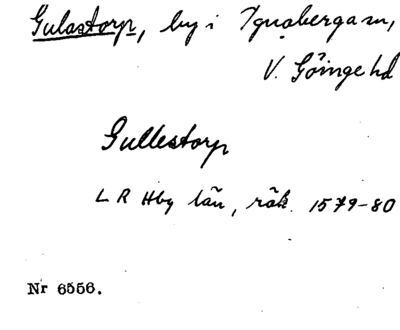 Gulastorp, by i Ignaberga sn,
V. Göinge hd
Gullestorp
L R Hbg län, räk. 1579-80
Nr 6556.